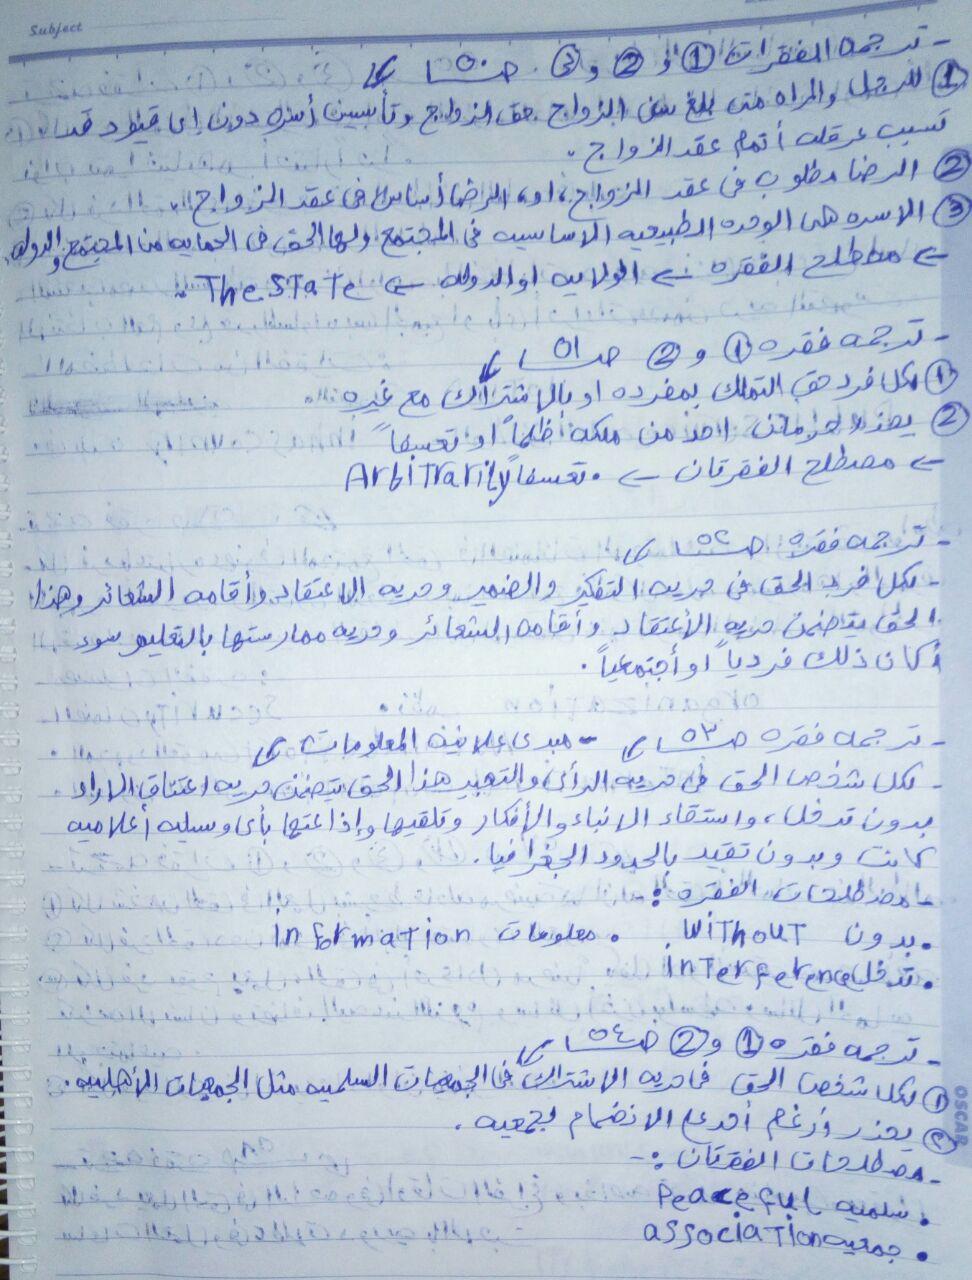 Subject
- ترجمه الفقرات ① و ② و ③ صـ ٥٠
① للرجل والمراه متى بلغ سن الزواج حق الزواج وتأسيس أسره دون اى قيود قد
تسبب عرقله أتمام عقد الزواج.
② الرضا مطلوب فى عقد الزواج، او، الرضا أساس فى عقد الزواج.
③ الاسره هى الوحده الطبيعيه الاساسيه فى المجتمع ولها الحق فى الحمايه من المجتمع والدوله.
← مصطلح الفقره ← الولايه او الدوله ← The State.
- ترجمه فقره ① و ② صـ ٥١
① لكل فرد حق التملك بمفرده او بالاشتراك مع غيره
② حرمان احد من ملكه ظلماً او تعسفاً
← مصطلح الفقرتان ← تعسفاً Arbitrarily
- ترجمه فقره صـ ٥٢
- لكل فرد الحق فى حريه التفكر والضمير وحريه الاعتقاد وأقامه الشعائر وهذا
الحق يتضمن حريه الأعتقاد وأقامه الشعائر وحريه ممارستها بالتعليم سوء
أكان ذلك فردياً او أجتمعياً.
- ترجمه فقره صـ ٥٣ - مبدى علانيه المعلومات
- لكل شخص الحق فى حريه الرأى والتعبير هذا الحق يتضمن حريه اعتناق الاراء
بدون تدخل، واستقاء الانباء والأفكار وتلقيها وإذاعتها بأى وسيله أعلاميه
كانت وبدون تقيد بالحدود الجغرافيا.
مصطلحات الفقره:
• بدون Without • معلومات Information
• تدخل Interference
- ترجمه فقره ① و ② صـ ٥٤
① لكل شخص الحق فى حريه الاشتراك فى الجمعيات السلميه مثل الجمعيات الأهليه.
② يحذر أحد على الانضمام لجمعيه.
- مصطلحات الفقرتان :-
• سلميه Peaceful
• جمعيه association
OSCAR